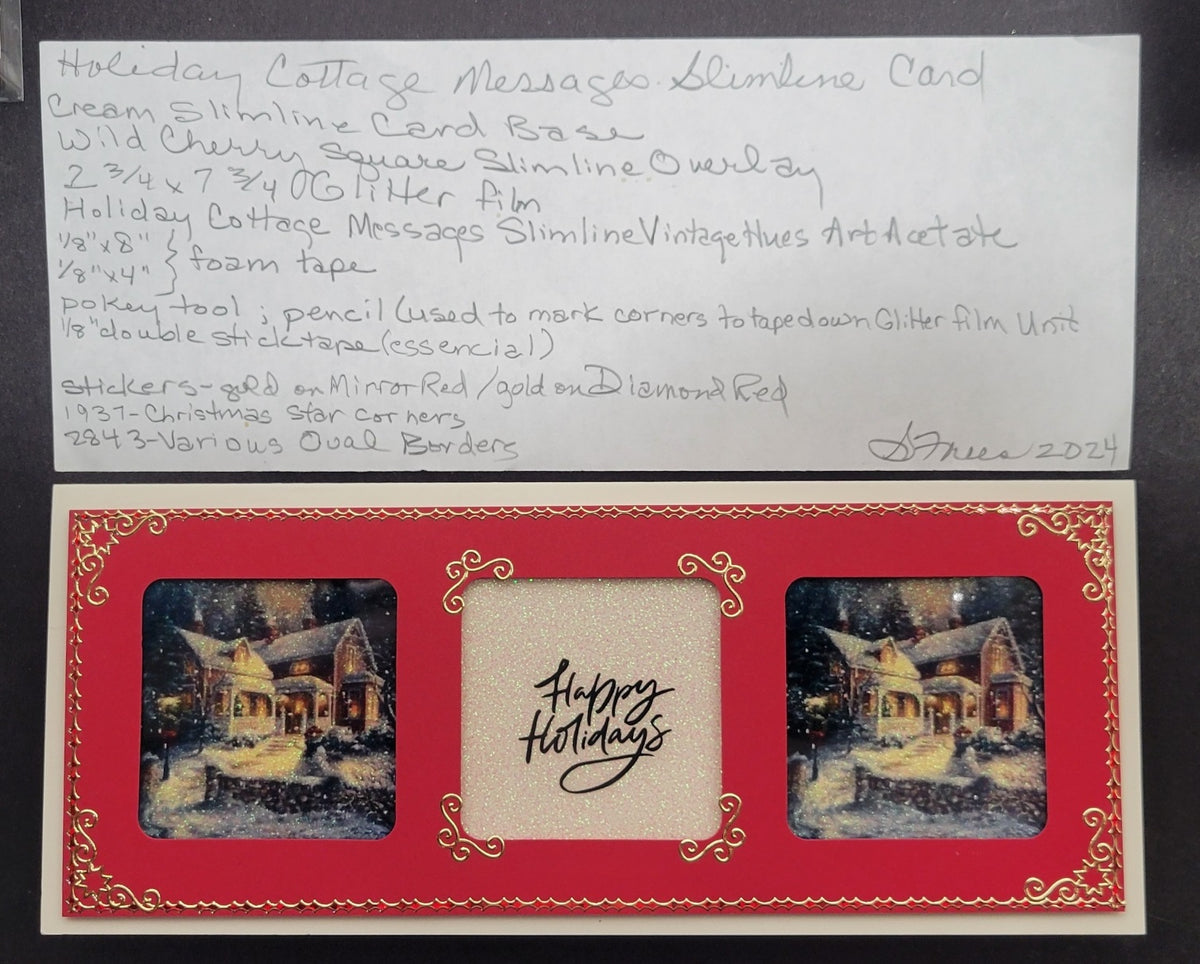 Holiday Cottage Messages Slimline Card
Cream Slimline Card Base
Wild Cherry Square Slimline Overlay
2 3/4 x 7 3/4 Glitter film
Holiday Cottage Messages Slimline Vintage Hues Art Acetate
1/8" x 8"
1/8" x 4" } foam tape
pokey tool ; pencil (used to mark corners to tape down Glitter film Unit
1/8" double stick tape (essencial)
stickers - gold on Mirror Red / gold on Diamond Red
1937 - Christmas Star corners
2843 - Various Oval Borders
2024
Happy
Holidays